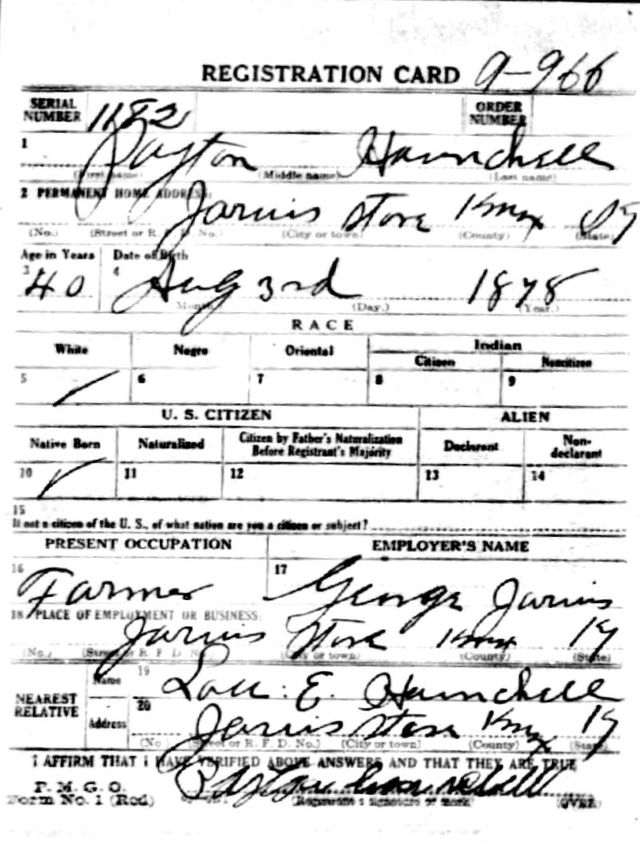 REGISTRATION CARD 9-966
SERIAL NUMBER 1182 ORDER NUMBER
1 Payton Haunchell
(First name) (Middle name) (Last name)
2 PERMANENT HOME ADDRESS:
Jarvis Store Knox Ky
(No.) (Street or R. F. D. No.) (City or town) (County) (State)
Age in Years Date of Birth
3 40 4 Aug 3rd 1878
(Month.) (Day.) (Year.)
RACE
White Negro Oriental Indian
Citizen Noncitizen
5 6 7 8 9
U. S. CITIZEN ALIEN
Native Born Naturalized Citizen by Father's Naturalization Before Registrant's Majority Declarant Non-declarant
10 11 12 13 14
15
If not a citizen of the U. S., of what nation are you a citizen or subject?
PRESENT OCCUPATION EMPLOYER'S NAME
16 Farmer 17 George Jarvis
18 PLACE OF EMPLOYMENT OR BUSINESS:
Jarvis Store Knox Ky
(No.) (Street or R. F. D. No.) (City or town) (County) (State)
NEAREST RELATIVE
Name 19 E. Haunchell
Address 20 Jarvis Store Knox Ky
(No.) (Street or R. F. D. No.) (City or town) (County) (State)
I AFFIRM THAT I HAVE VERIFIED ABOVE ANSWERS AND THAT THEY ARE TRUE
P. M. G. O.
Form No. 1 (Red) Payton Haunchell
(Registrant's signature or mark) (OVER)